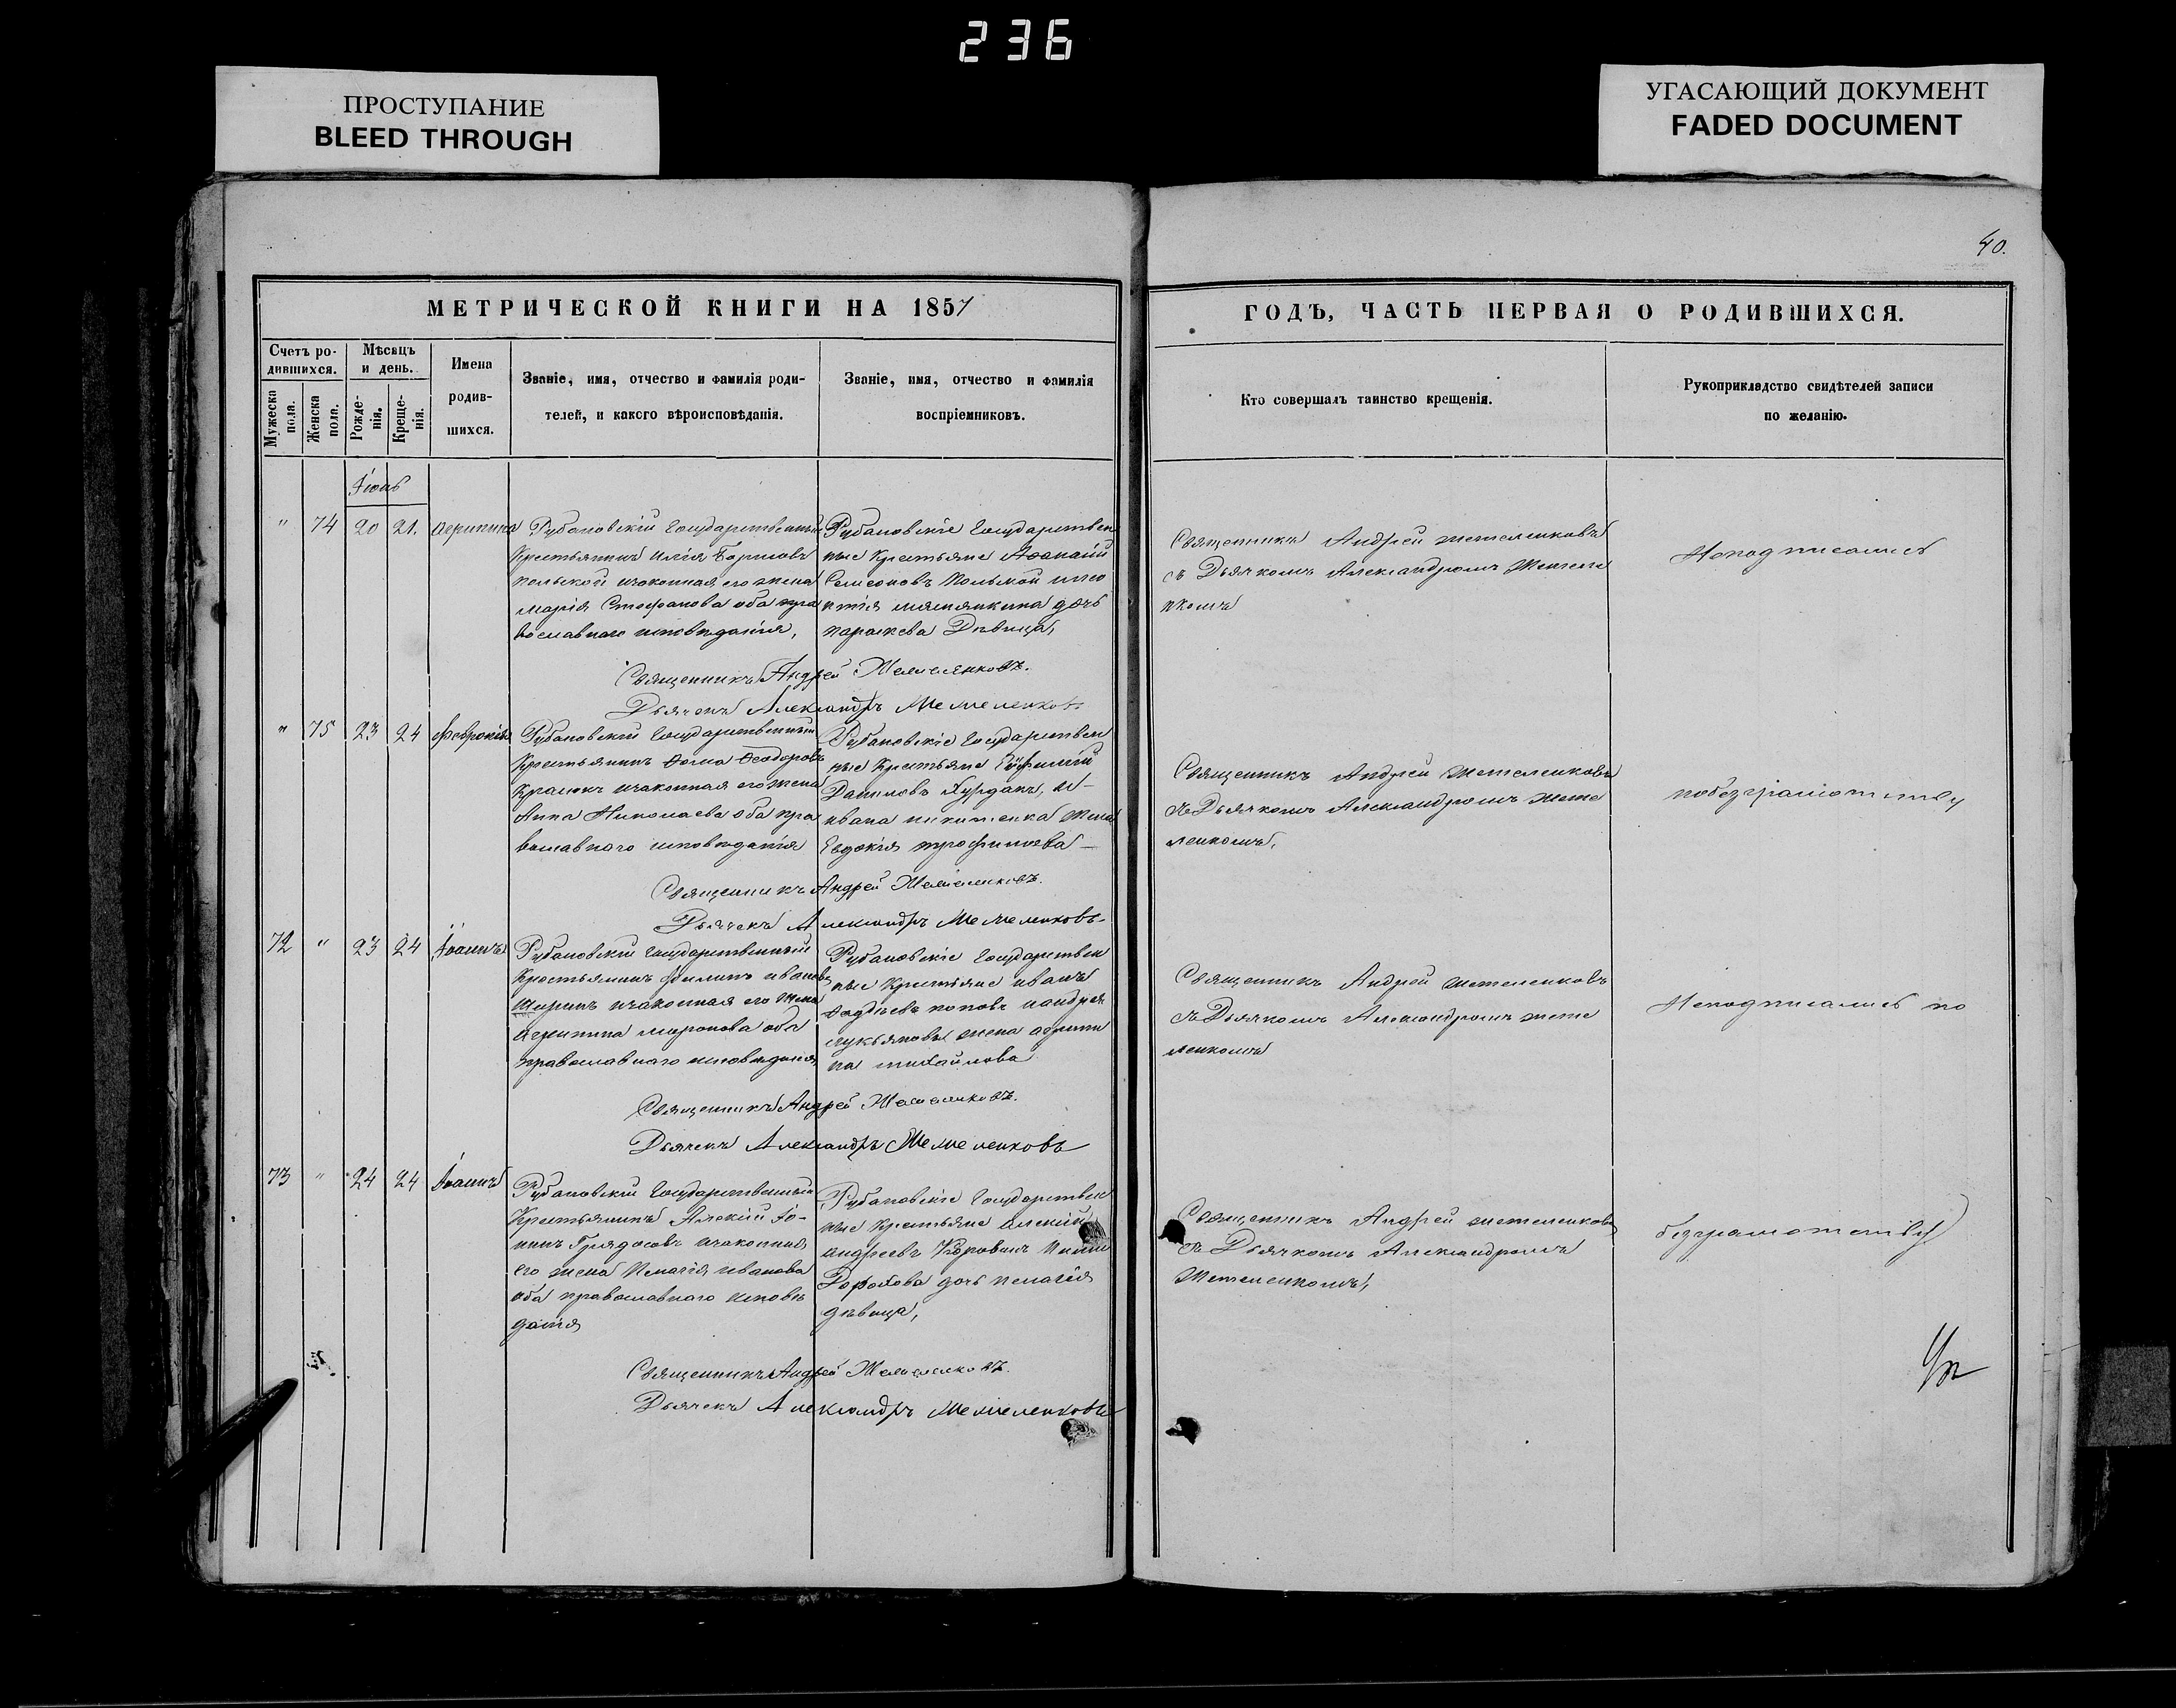 236
ПРОСТУПАНИЕ
BLEED THROUGH
УГАСАЮЩИЙ ДОКУМЕНТ
FADED DOCUMENT
40.
МЕТРИЧЕСКОЙ КНИГИ НА 1857
ГОДЪ, ЧАСТЬ ПЕРВАЯ О РОДИВШИХСЯ.
Счетъ ро-
дившихся.
Мужеска
пола.
Женска
пола.
Мѣсяцъ
и день.
Рожде-
нія.
Креще-
нія.
Имена
родив-
шихся.
Званіе, имя, отчество и фамилія роди-
телей, и какого вѣроисповѣданія.
Званіе, имя, отчество и фамилія
воспріемниковъ.
Кто совершалъ таинство крещенія.
Рукоприкладство свидѣтелей записи
по желанію.
" 74 20 21.
Рубановскій Государственный
Крестьянинъ Илія
законная его жена
Марія Стефанова оба пра
вославнаго исповѣданія,
Рубановскіе Государствен
ные Крестьяне
дочь
параскева Дѣвица,
Священникъ Андрей Метеленковъ
съ Дьячкомъ Александромъ Метеле
нкомъ
Неподписались
Священникъ Андрей Метеленковъ.
Дьячекъ Александръ Метеленковъ
" 75 23 24 Февронія
Рубановскій Государственный
Крестьянинъ Ѳома Ѳеодоровъ
законная его жена
Анна Николаева оба пра
вославнаго исповѣданія
Рубановскіе Государствен
ные Крестьяне Еѵфимій
Даниловъ Курданъ, и
ивана никитенка жена
Евдокія трофимова
Священникъ Андрей Метеленковъ
съ Дьячкомъ Александромъ Мете
ленкомъ,
побезграмотству
Священникъ Андрей Метеленковъ.
Дьячекъ Александръ Метеленковъ
72 " 23 24 Іоаннъ
Рубановскій Государственный
Крестьянинъ филипъ ивановъ
законная его жена
Агрипина миронова оба
православнаго исповѣданія
Рубановскіе Государствен
ные Крестьяне иванъ
поповъ и андрея
лукьянова жена агрипи
на михайлова
Священникъ Андрей Метеленковъ
съ Дьячкомъ Александромъ Мете
ленкомъ
Неподписались по
Священникъ Андрей Метеленковъ.
Дьячекъ Александръ Метеленковъ
73 " 24 24 Іоаннъ
Рубановскій Государственный
Крестьянинъ Алексій
законная
его жена Пелагія иванова
оба православнаго исповѣ
данія
Рубановскіе Государствен
ные Крестьяне алексій
андреевъ
дочь пелагія
дѣвица,
Священникъ Андрей Метеленковъ
съ Дьячкомъ Александромъ
Метеленкомъ,
безграмотству
Священникъ Андрей Метеленковъ.
Дьячекъ Александръ Метеленковъ